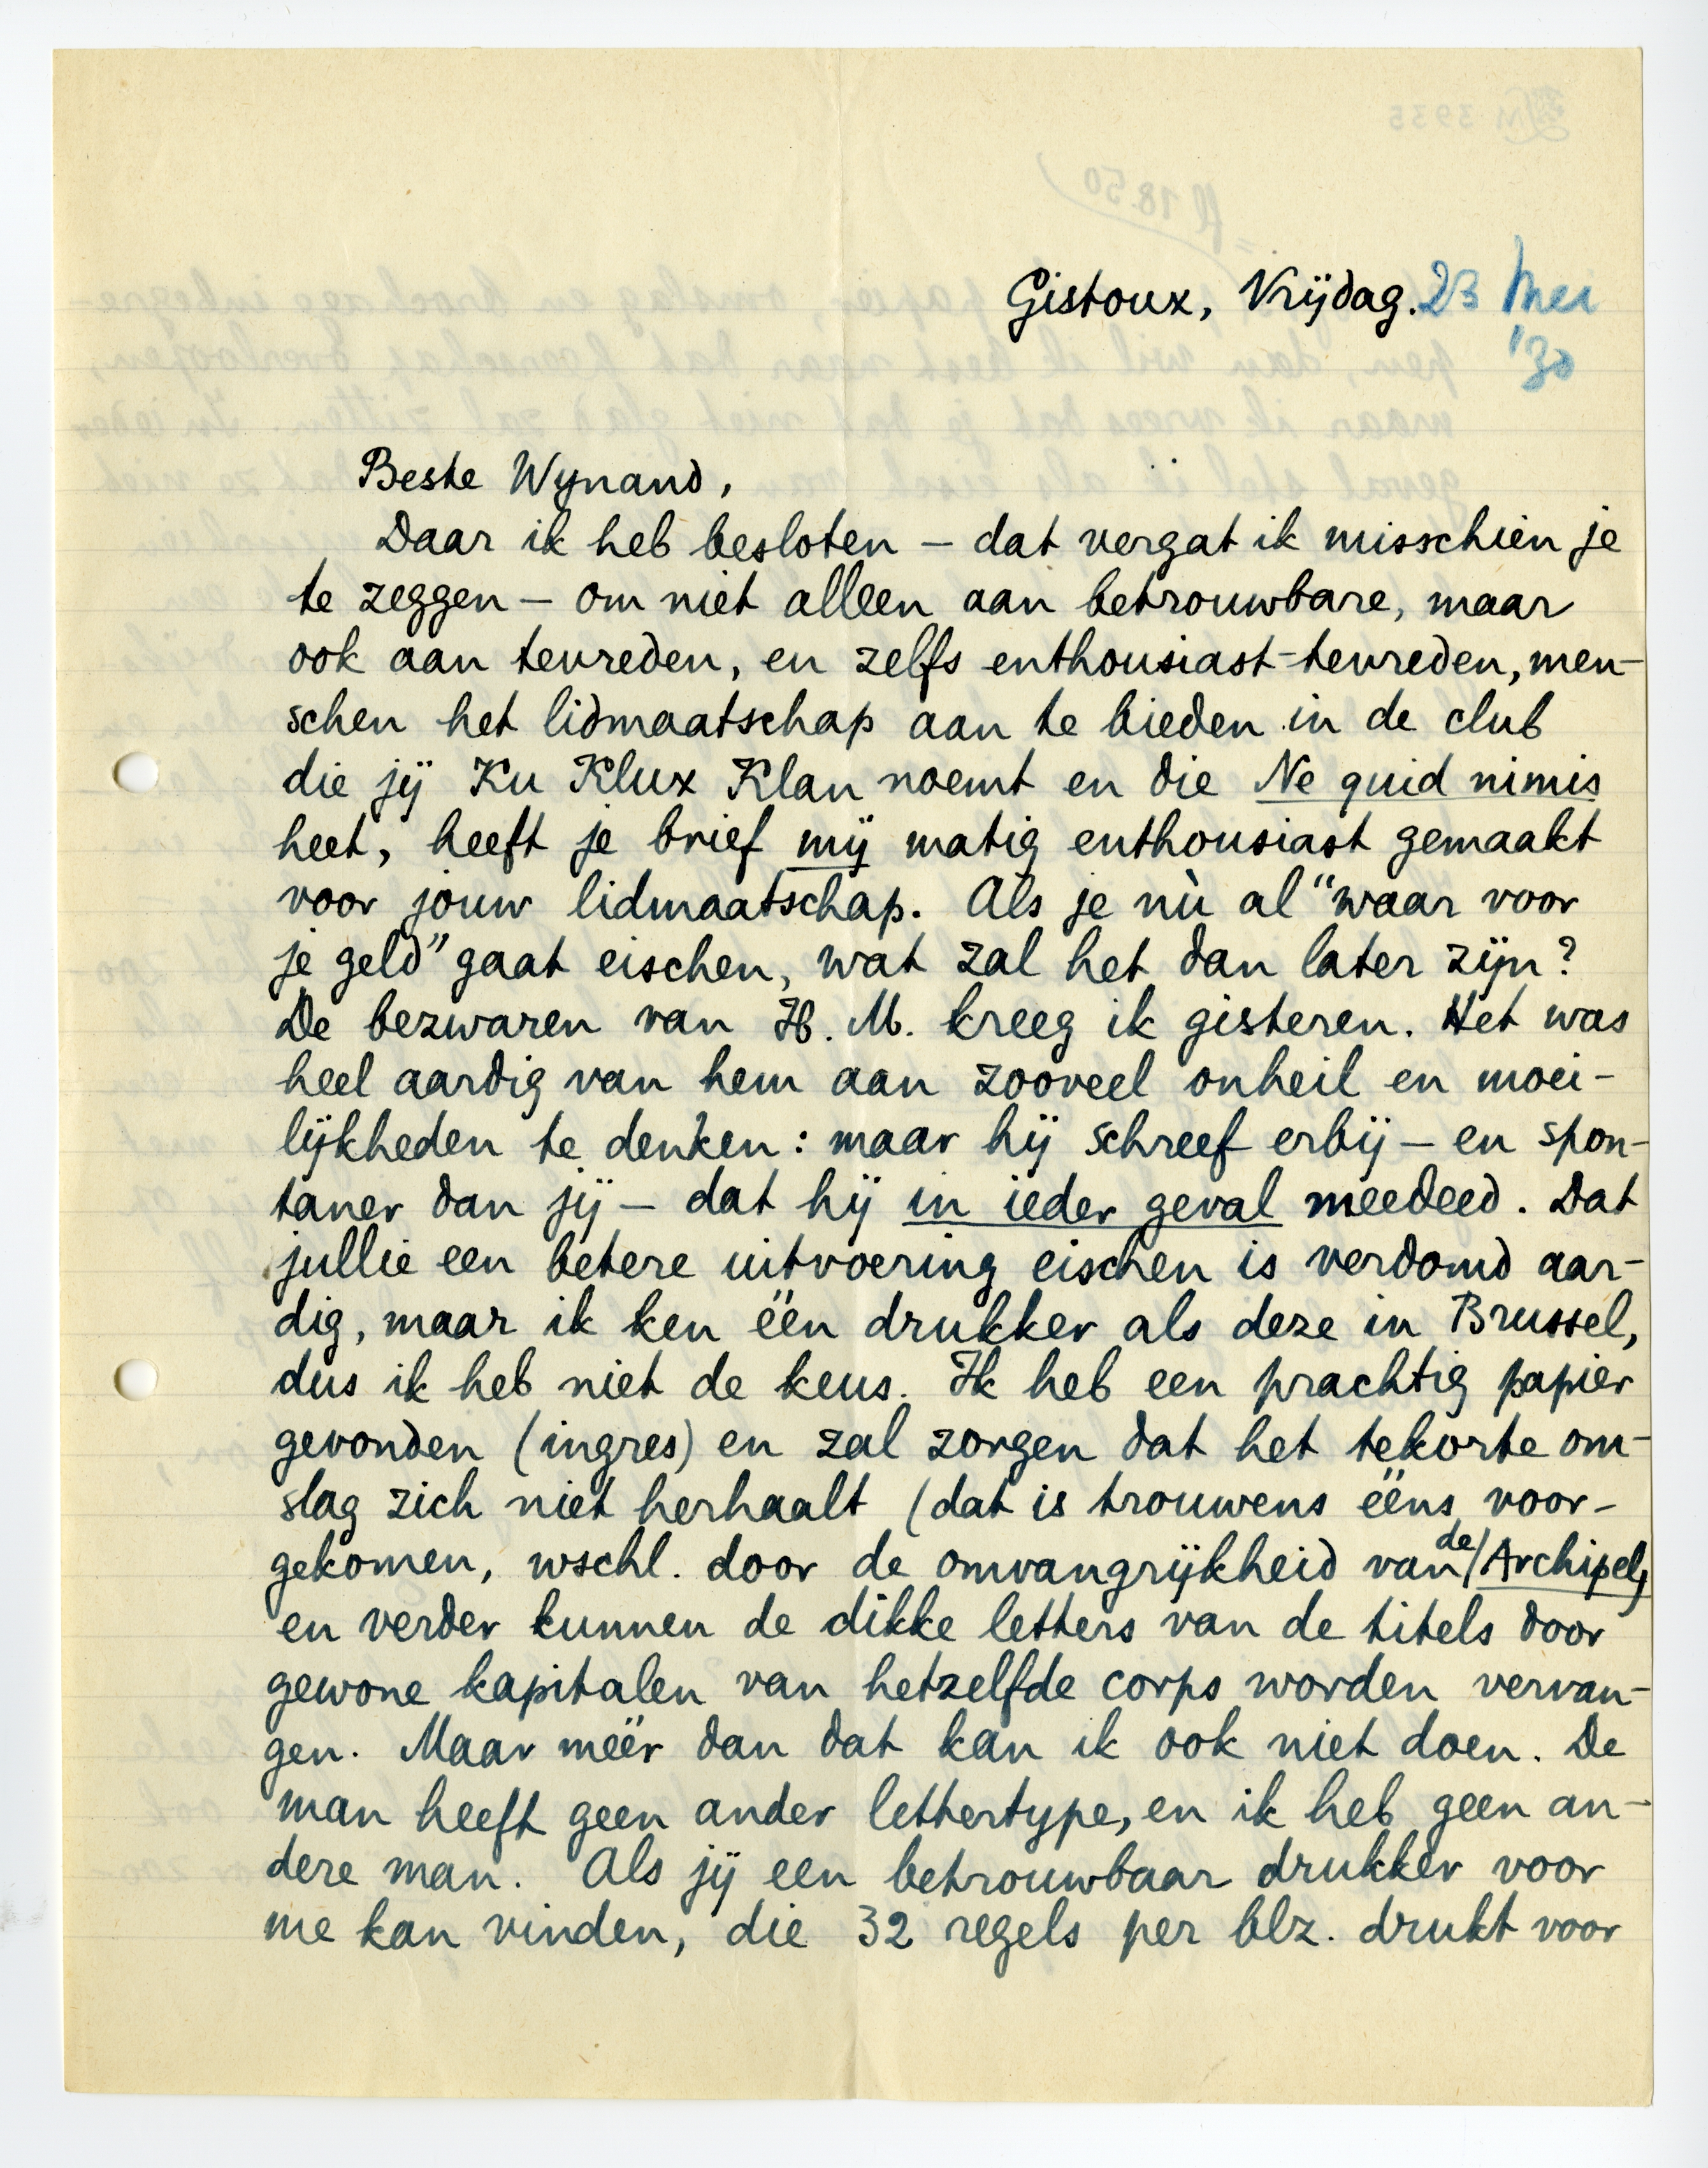 Gistoux, Vrijdag. 23 Mei
'30
Beste Wynand,
Daar ik heb besloten – dat vergat ik misschien je
te zeggen – om niet alleen aan betrouwbare, maar
ook aan tevreden, en zelfs enthousiast-tevreden, men-
schen het lidmaatschap aan te bieden in de club
die jij Ku Klux Klan noemt en die Ne quid nimis
heet, heeft je brief mij matig enthousiast gemaakt
voor jouw lidmaatschap. Als je nù al “waar voor
je geld” gaat eischen, wat zal het dan later zijn?
De bezwaren van H. M. kreeg ik gisteren. Het was
heel aardig van hem aan zooveel onheil en moei-
lijkheden te denken: maar hij schreef erbij – en spon-
taner dan jij – dat hij in ieder geval meedeed. Dat
jullie een betere uitvoering eischen is verdomd aar-
dig, maar ik ken één drukker als deze in Brussel,
dus ik heb niet de keus. Ik heb een prachtig papier
gevonden (ingres) en zal zorgen dat het tekorte om-
slag zich niet herhaalt (dat is trouwens ééns voor-
gekomen, wschl. door de omvangrijkheid van de Archipel)
en verder kunnen de dikke letters van de titels door
gewone kapitalen van hetzelfde corps worden vervan-
gen. Maar méér dan dat kan ik ook niet doen. De
man heeft geen ander lettertype, en ik heb geen an-
dere man. Als jij een betrouwbaar drukker voor
me kan vinden, die 32 regels per blz. drukt voor